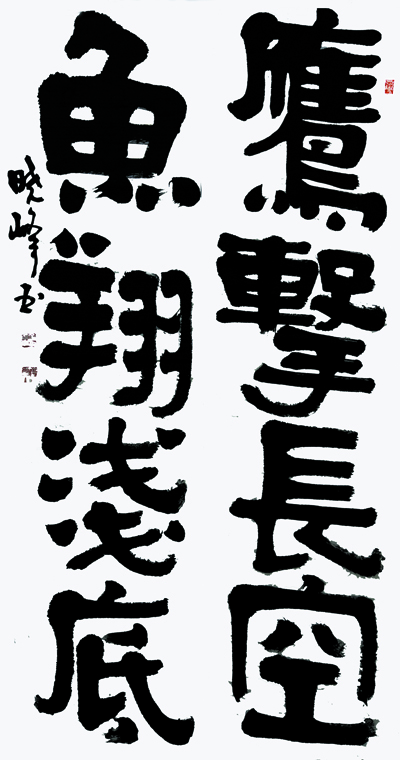 鷹擊長空
魚翔淺底
曉峰書